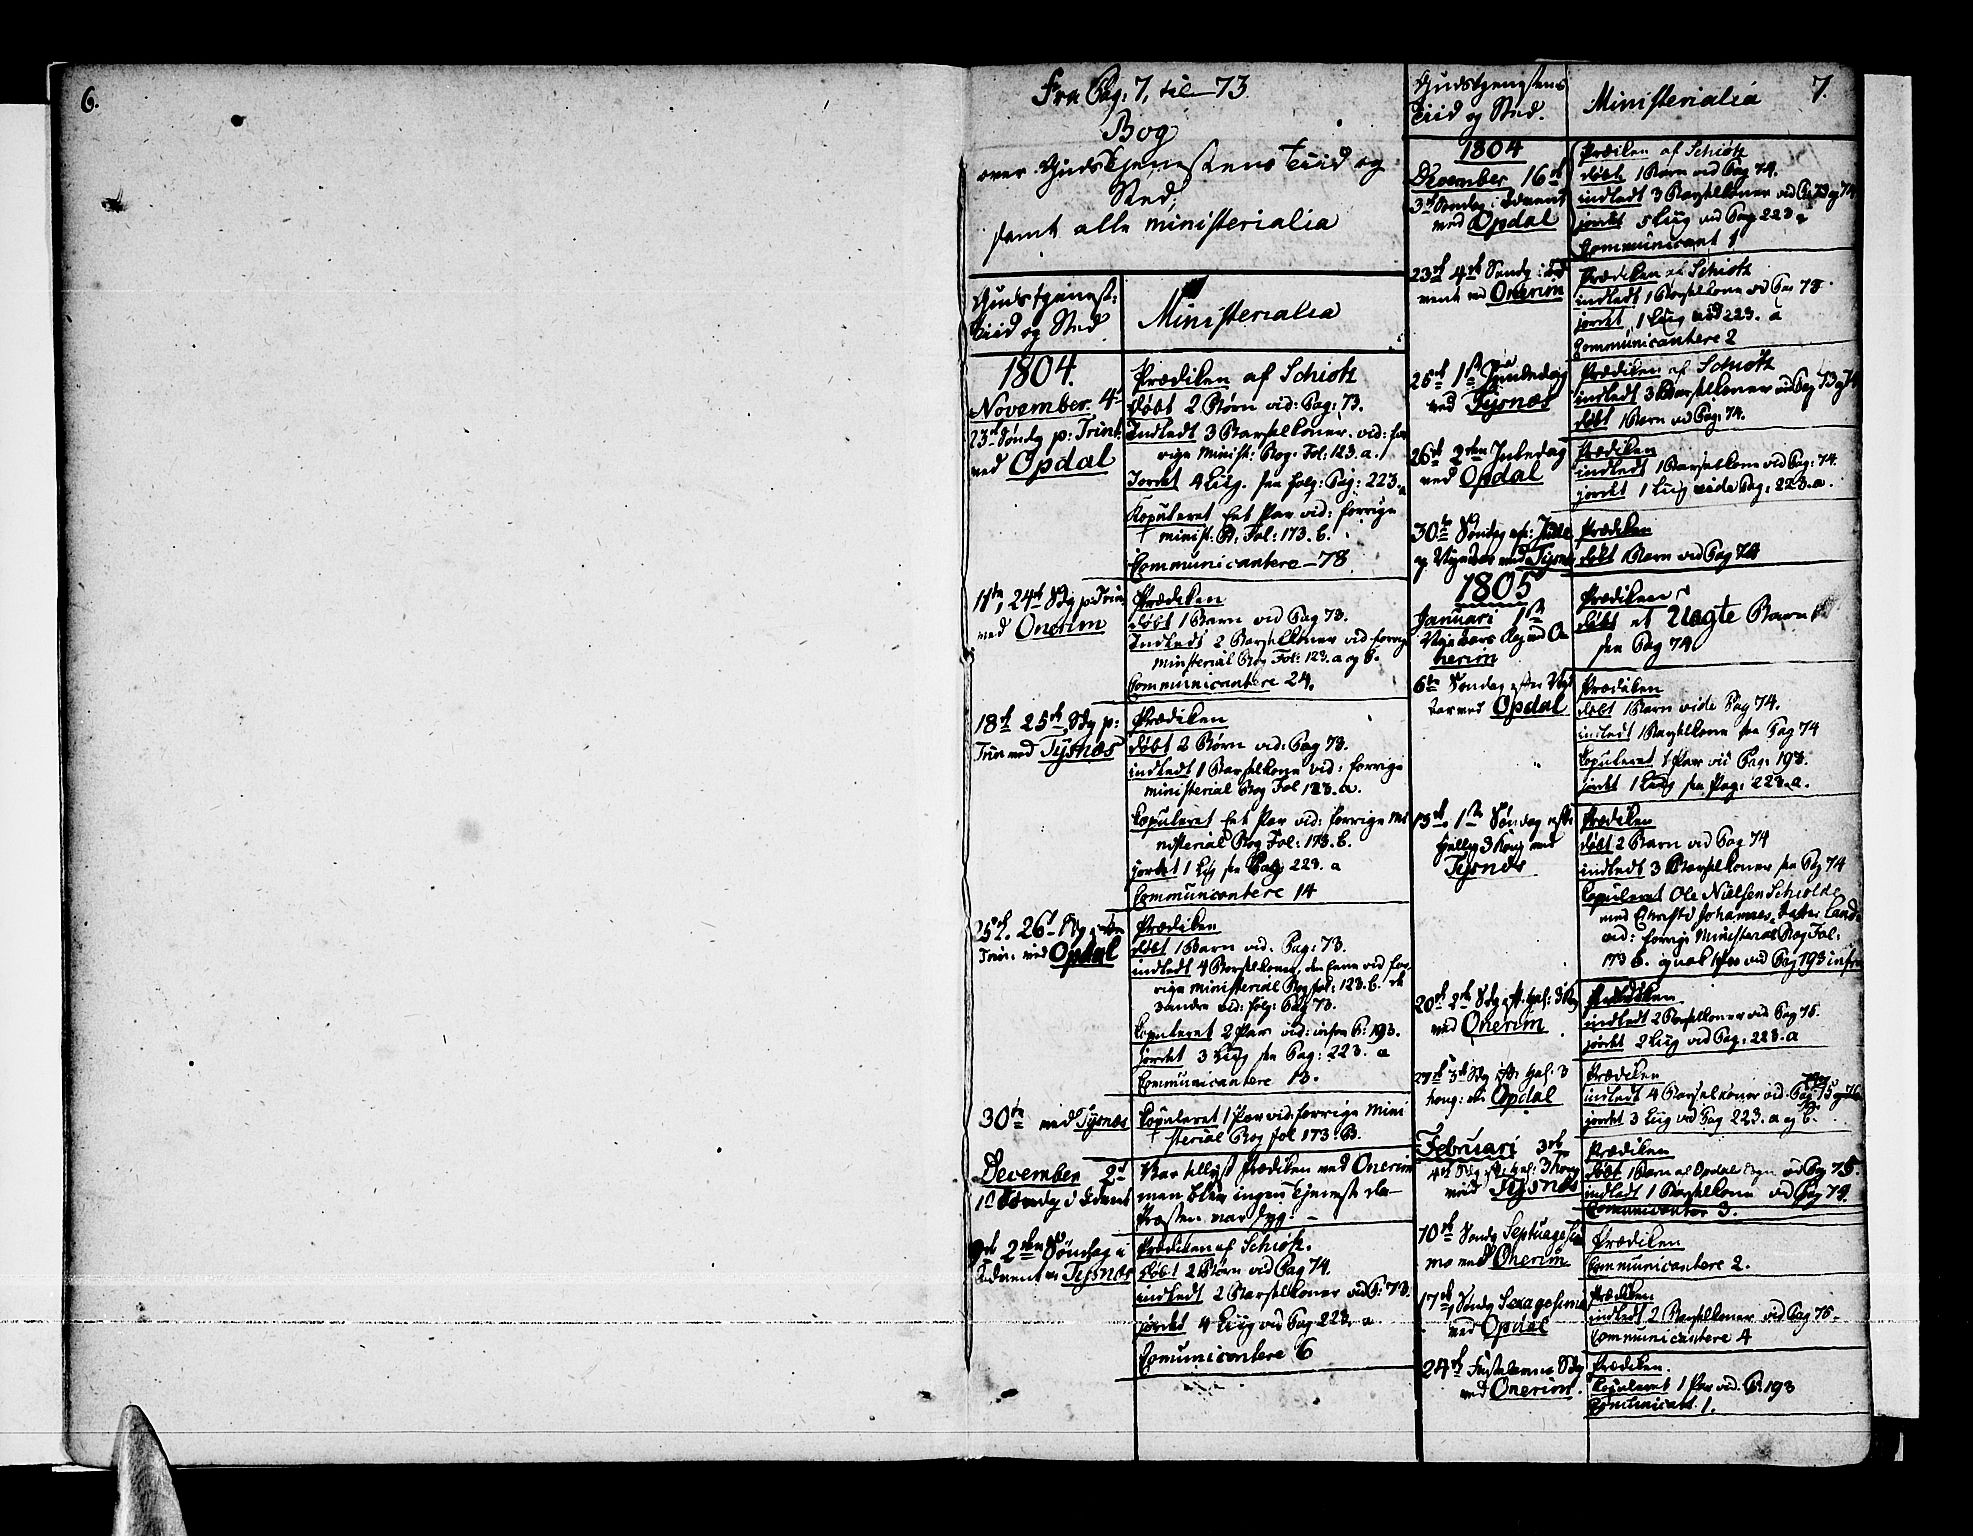 6.
Fra Pag: 7, til 73
Bog
over Gudstjenestens Tiid og
Sted,
samt alle ministerialia
Gudstjenest:
Tiid og Sted
Ministerialia
1804.
November 4de
23de Søndg p: Trinit:
ved Opdal
Prædiken af Schiøtz
døbt 2 Børn vid: Pag: 73.
Indledt 3 Barselkoner. vid: for
rige Minist: Bog. Fol: 123. a.
Jordet 4 Liig. see følg: Pag: 223. a
Kopuleret Eet Par vid: forrige
minist: B: Fol: 173. b.
Communicantere – 78.
11te, 24de Sdg p: Trin
ved Onerim
Prædiken
døbt 1 Barn vid Pag 73.
Indledt 2 Barselkoner vid forrige
ministerial Bog Fol: 123. a og b.
Communicantere 24.
18de 25de Sdg p:
Trin ved Tysnæs
Prædiken
døbt 2 Børn vid: Pag 73.
indledt 1 Barselkone vid: forrige
ministerial Bog Fol 123. a.
Kopuleret Eet Par vid: forrige Mi
nisterial Bog Fol: 173. b.
jordet 1 Liig see Pag 223. a
Communicantere 14
25de 26de Sdg
Trin: ved Opdal
Prædiken
døbt 1 Barn vid. Pag: 73.
indledt 4 Barselkoner, den Eene vid for
rige ministerial Bog fol: 123. b. de
3 andre vid: følg: Pag 73.
Kopuleret 2 Par vid: infra P: 193.
jordet 3 Liig see Pag: 223. a
Communicantere 13.
30te ved Tysnæs
Kopuleret 1 Par vid: forrige Mini
sterial Bog fol 173. B.
December 2d
1te Søndg i Advent
Var tillyst Prædiken ved Onerim
men blev ingen Tjeneste da
Præsten var syg. –
9de 2den Søndag i
Advent ved Tysnæs
Prædiken af Schiøtz.
døbt 2 Børn vid Pag 74.
indledt 2 Barselkoner vid P: 73.
jordet 4 Liig vid Pag 223. a.
Comunicantere 6
Gudstjenstens
Tiid og Sted.
Ministerialia
7.
1804
December 16de
3de Søndag i Advent
ved Opdal
Prædiken af Schiøtz
døbt 1 Barn vid Pag 74.
indledt 3 Barselkoner vid P: 73 og 74
jordet 5 Liig vid Pag 223. a
Communicant 1
23de 4de Søndg i Ad
vent ved Onerim
Prædiken af Schiøtz
indledt 1 Barselkone vid Pag 73.
jordet 1 Liig vid 223. a
Communicantere 2
25de 1ste Juledag
ved Tysnæs
Prædiken af Schiøtz
indledt 3 Barselkoner vid Pag 73 og 74
døbt 1 Barn vid Pag: 74.
26de 2den Juledag
ved Opdal
Prædiken
indledt 1 Barselkone vid Pag: 74.
jordet 1 Liig vide Pag: 223. a.
30te Søndag eft: Juule
og Nytaar ved Tysnæs
Prædiken
døbt 1 Barn vid Pag 74
1805
Januari 1ste
Nytaars Dag ved O
nerim
Prædiken
døbt et Uægte Barn
see Pag 74
6te Søndag efter Nyt
aar ved Opdal
Prædiken
døbt 1 Barn vide Pag 74.
indledt 1 Barselkone see Pag 74
Kopuleret 1 Par vid Pag: 193.
jordet 1 Liig see Pag: 223. a.
13de 1ste Søndag efter
Hellig 3 Kong ved
Tysnæs
Prædiken
døbt 2 Barn vid Pag 74
indledt 3 Barselkoner see Pag 74
Kopuleret Ole Nielsen Schiolde
med Christi Johannes datter Lande
vid: forrige Ministerial Bog Fol:
173 b. og nok 1 Par vid Pag 193 infra
20de 2de Sdg eft. Hel: 3 Kong
ved Onerim
Prædiken
indledt 2 Barselkoner vid Pag 75.
jordet 2 Liig vid Pag: 223. a
27de 3de Sdg eft Hel. 3
Kong: ved Opdal
Prædiken
indledt 4 Barselkoner vid Pag 75 og 76
jordet 3 Liig vid Pag 223. a og b.
Februari 3de
4de Sdg eft: Hel: 3 Kong
ved Tysnæs
Prædiken
døbt 1 Barn af Opdal Sogn vid Pag 75.
indledt 1 Barselkone vid Pag 74.
Comunicanter 3.
10de Søndg Septuagesi
ma ved Onerim
Prædiken
Communicantere 2.
17de Søndg Sexagesima
ved Opdal
Prædiken
indledt 2 Barselkoner vid Pag 75.
Communicantere 4
24de Fastelavns Sdg
ved Onerim.
Prædiken.
Kopuleret 1 Par vid. P: 193
Comunicant. 1.